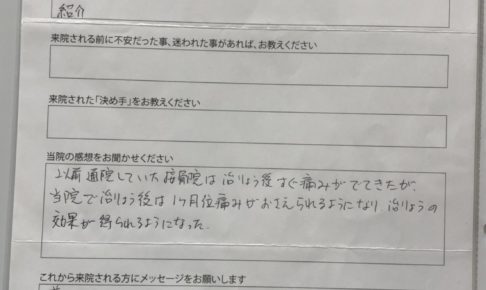 紹介
来院される前に不安だった事、迷われた事があれば、お教えください
来院された「決め手」をお教えください
当院の感想をお聞かせください
以前通院していた接骨院は治りょう後すぐ痛みがでてきたが、
当院で治りょう後は1ヶ月位痛みがおさえられるようになり、治りょうの
効果が得られるようになった。
これから来院される方にメッセージをお願いします